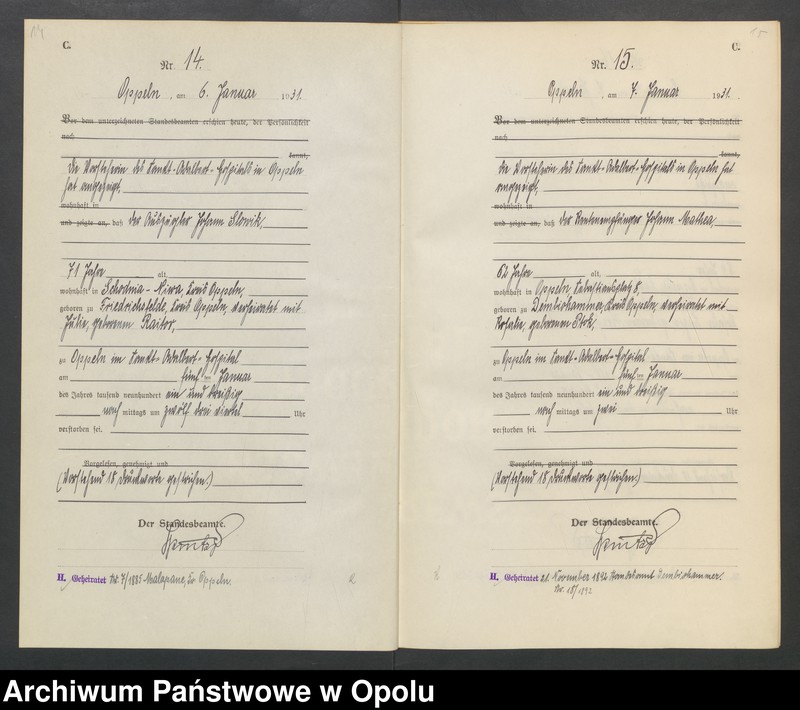 14
C.
Nr. 14.
Oppeln, am 6. Januar 1931.
Vor dem unterzeichneten Standesbeamten erschien heute, der Persönlichkeit
nach
kannt,
die Vorsteherin des Sankt-Adalbert-Hospitals in Oppeln
hat angezeigt,
wohnhaft in
und zeigte an, daß der Auszügler Johann Slowik,
71 Jahre alt,
wohnhaft in Schodnia-Niwa, Kreis Oppeln,
geboren zu Friedrichsfelde, Kreis Oppeln, verheiratet mit
Julie, geborenen Kaitor,
zu Oppeln im Sankt-Adalbert-Hospital
am fünften Januar
des Jahres tausend neunhundert ein und dreißig
nach mittags um zwölf drei viertel Uhr
verstorben sei.
Vorgelesen, genehmigt und
(Vorstehend 18 Druckworte gestrichen.)
Der Standesbeamte.
H. Geheiratet Nr. 7/1885 Malapane, Kr. Oppeln.
15
C.
Nr. 15.
Oppeln, am 7. Januar 1931.
Vor dem unterzeichneten Standesbeamten erschien heute, der Persönlichkeit
nach
kannt,
die Vorsteherin des Sankt-Adalbert-Hospitals in Oppeln hat
angezeigt,
wohnhaft in
und zeigte an, daß der Rentenempfänger Johann Mathea,
62 Jahre alt,
wohnhaft in Oppeln, Sebastiansplatz 8,
geboren zu Dembiohammer, Kreis Oppeln, verheiratet mit
Rosalie, geborenen Ptok,
zu Oppeln im Sankt-Adalbert-Hospital
am fünften Januar
des Jahres tausend neunhundert ein und dreißig
nach mittags um zwei Uhr
verstorben sei.
Vorgelesen, genehmigt und
(Vorstehend 18 Druckworte gestrichen.)
Der Standesbeamte.
H. Geheiratet 21. November 1892 Standesamt Dembiohammer.
Nr. 18/1892
Archiwum Państwowe w Opolu